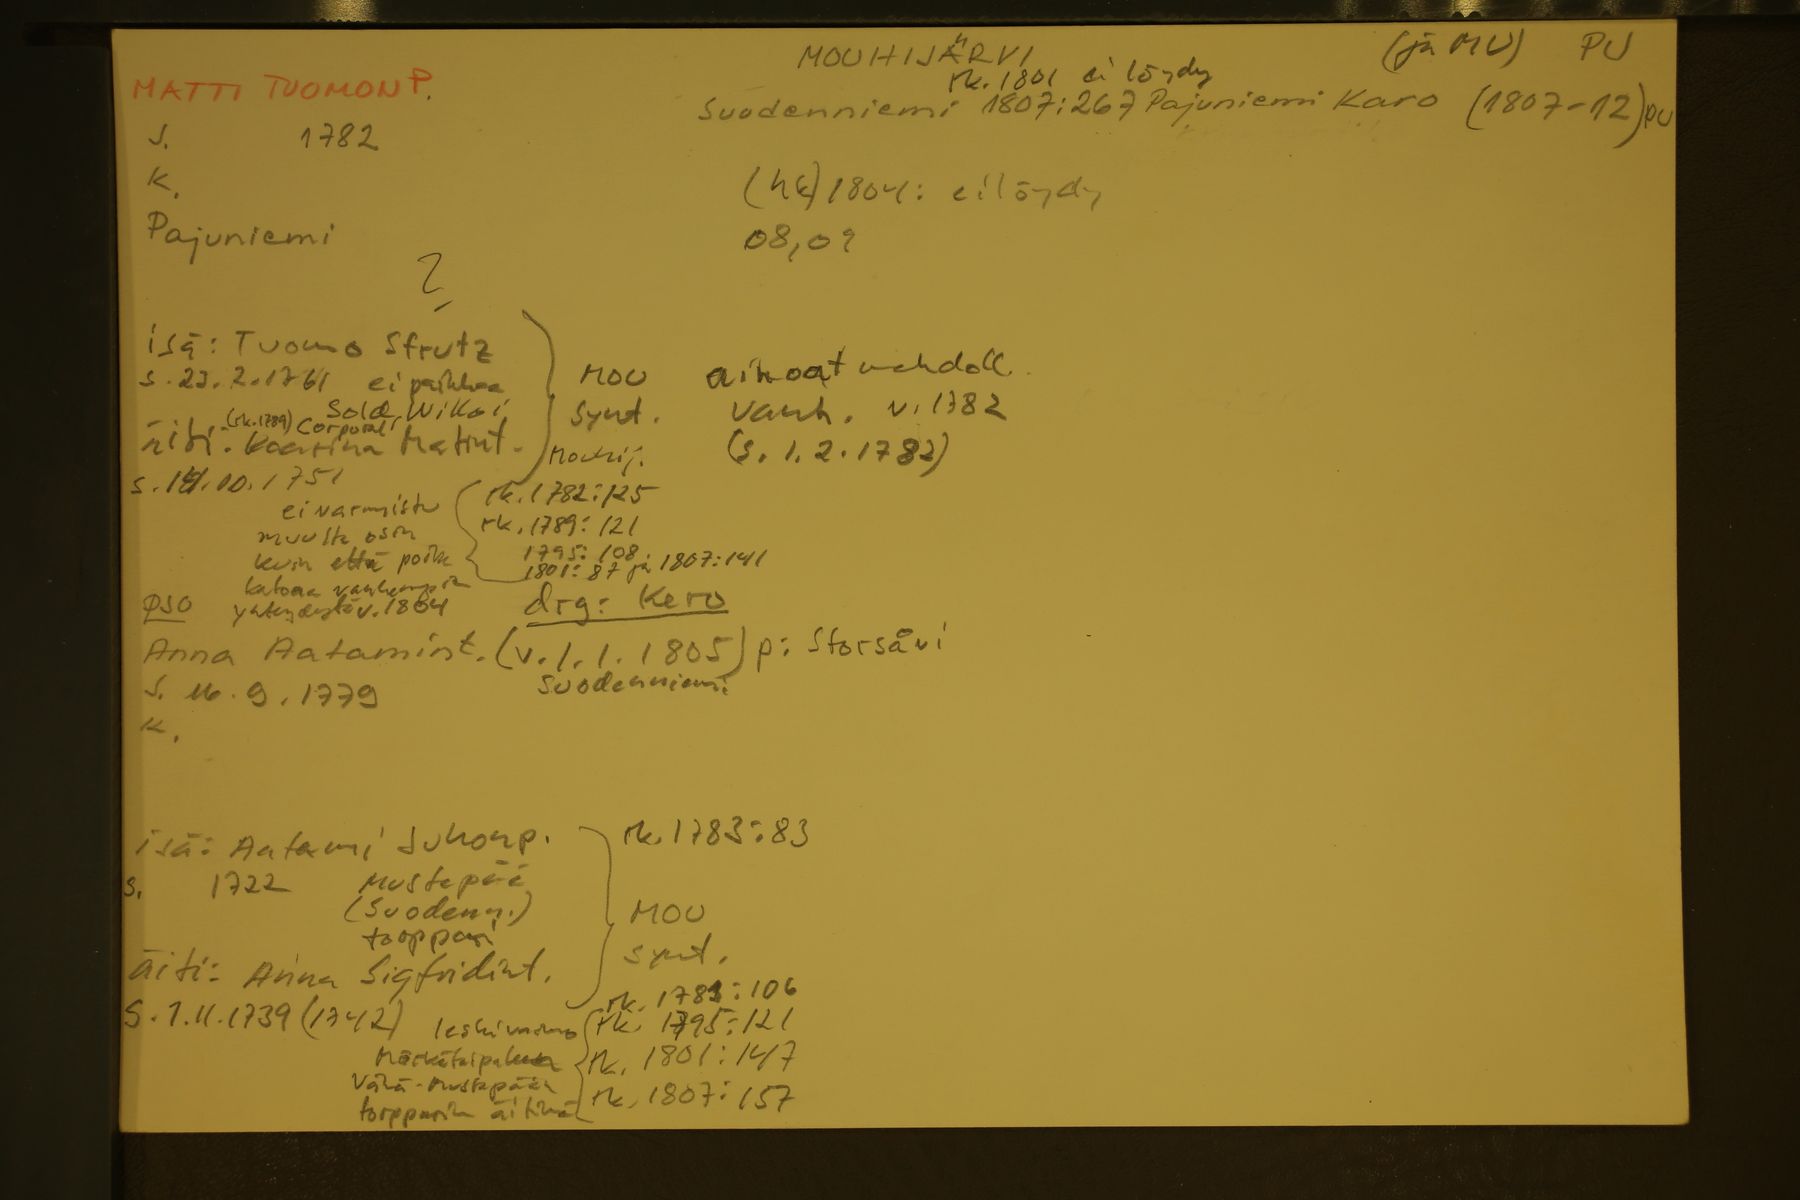 MOUHIJÄRVI (ja MU) PU
MATTI TUOMONP. rk. 1801 ei löydy
Suodenniemi 1807:267 Pajuniemi Karo (1807-12) PU
S. 1782
K. (hk) 1804: ei löydy
Pajuniemi 08, 09
?
isä: Tuomo Strutz
s. 23.2.1761 ei paikkaa MOU ainoat mahdoll.
Sold. synt. vanh. v. 1782
(rk.1789) Corporal
äiti: Kaarina Matint. Mouhij. (s. 1.2.1782)
s. 10.1751 rk. 1782:125
ei varmistu rk. 1789:121
muulta osin 1795:108.
kuin että poika 1801:87 ja 1807:141
katoaa vanhempien
PSO yhteydestä v. 1804 drg: Kero
Anna Aatamint. (v. 1.1.1805) p: Storsåvi
S. 16.9.1779 Suodenniemi
K.
isä: Aatami Juhonp. rk. 1783:83
s. 1722 Mustapää
(Suodenn.) MOU
torppari synt.
äiti: Anna Sigfridint.
S. 1.11.1739 (1742) rk. 1789:106
leskivaimo rk. 1795:121
rk. 1801:147
Vähä-Mustapään rk. 1807:157
torpparin äitinä